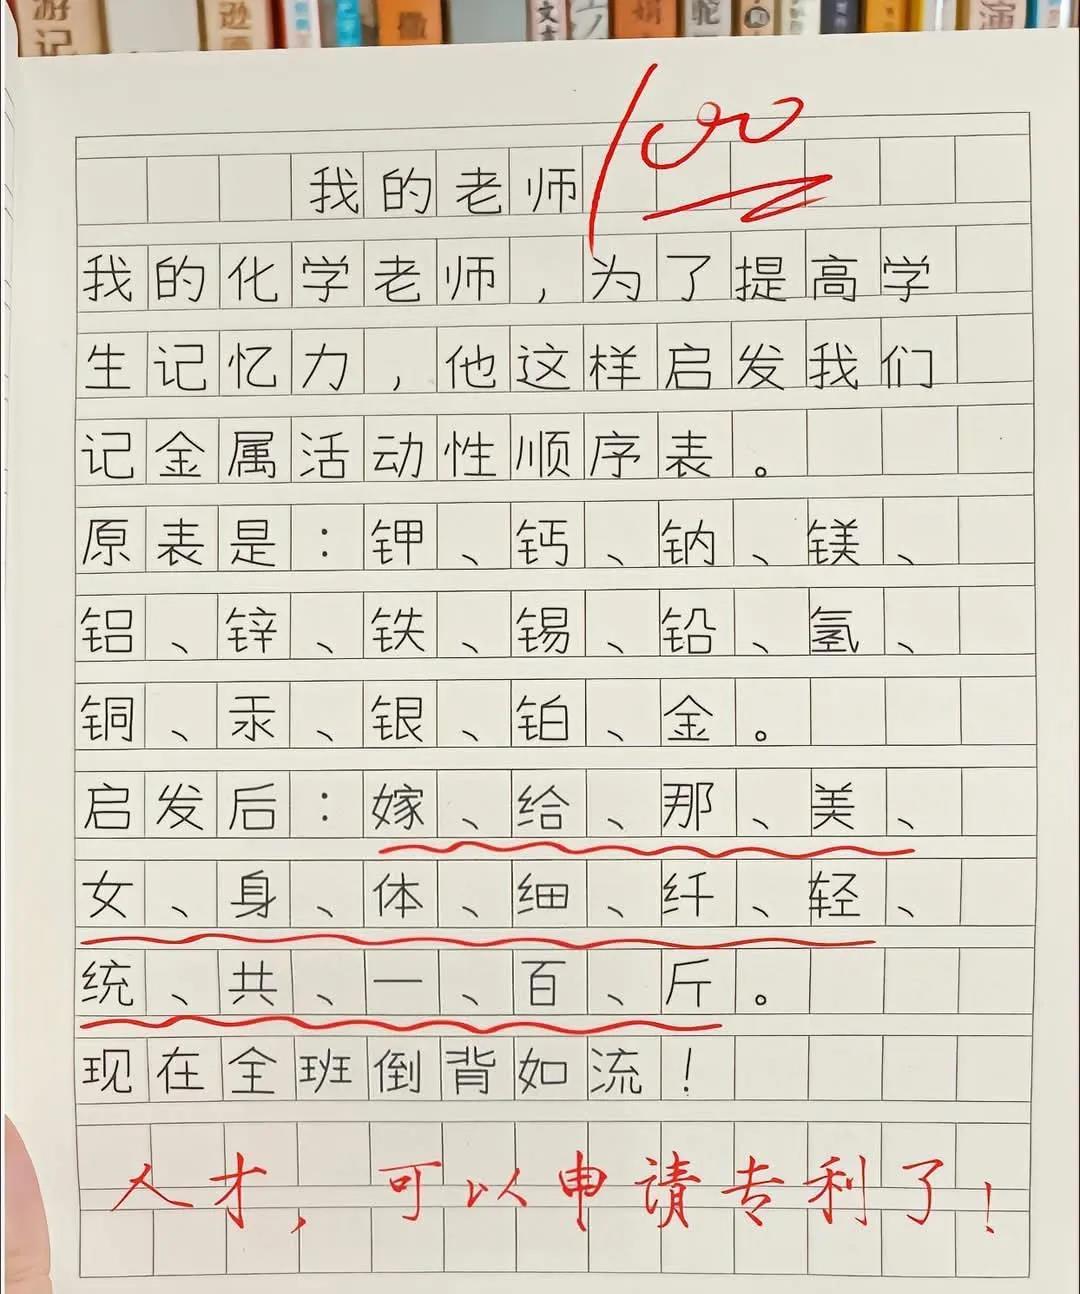 游记
逊
撒
文
娟
驼
演
我的老师
100
我的化学老师，为了提高学
生记忆力，他这样启发我们
记金属活动性顺序表。
原表是：钾、钙、钠、镁、
铝、锌、铁、锡、铅、氢、
铜、汞、银、铂、金。
启发后：嫁、给、那、美、
女、身、体、细、纤、轻、
统、共、一、百、斤。
现在全班倒背如流！
人才，可以申请专利了！